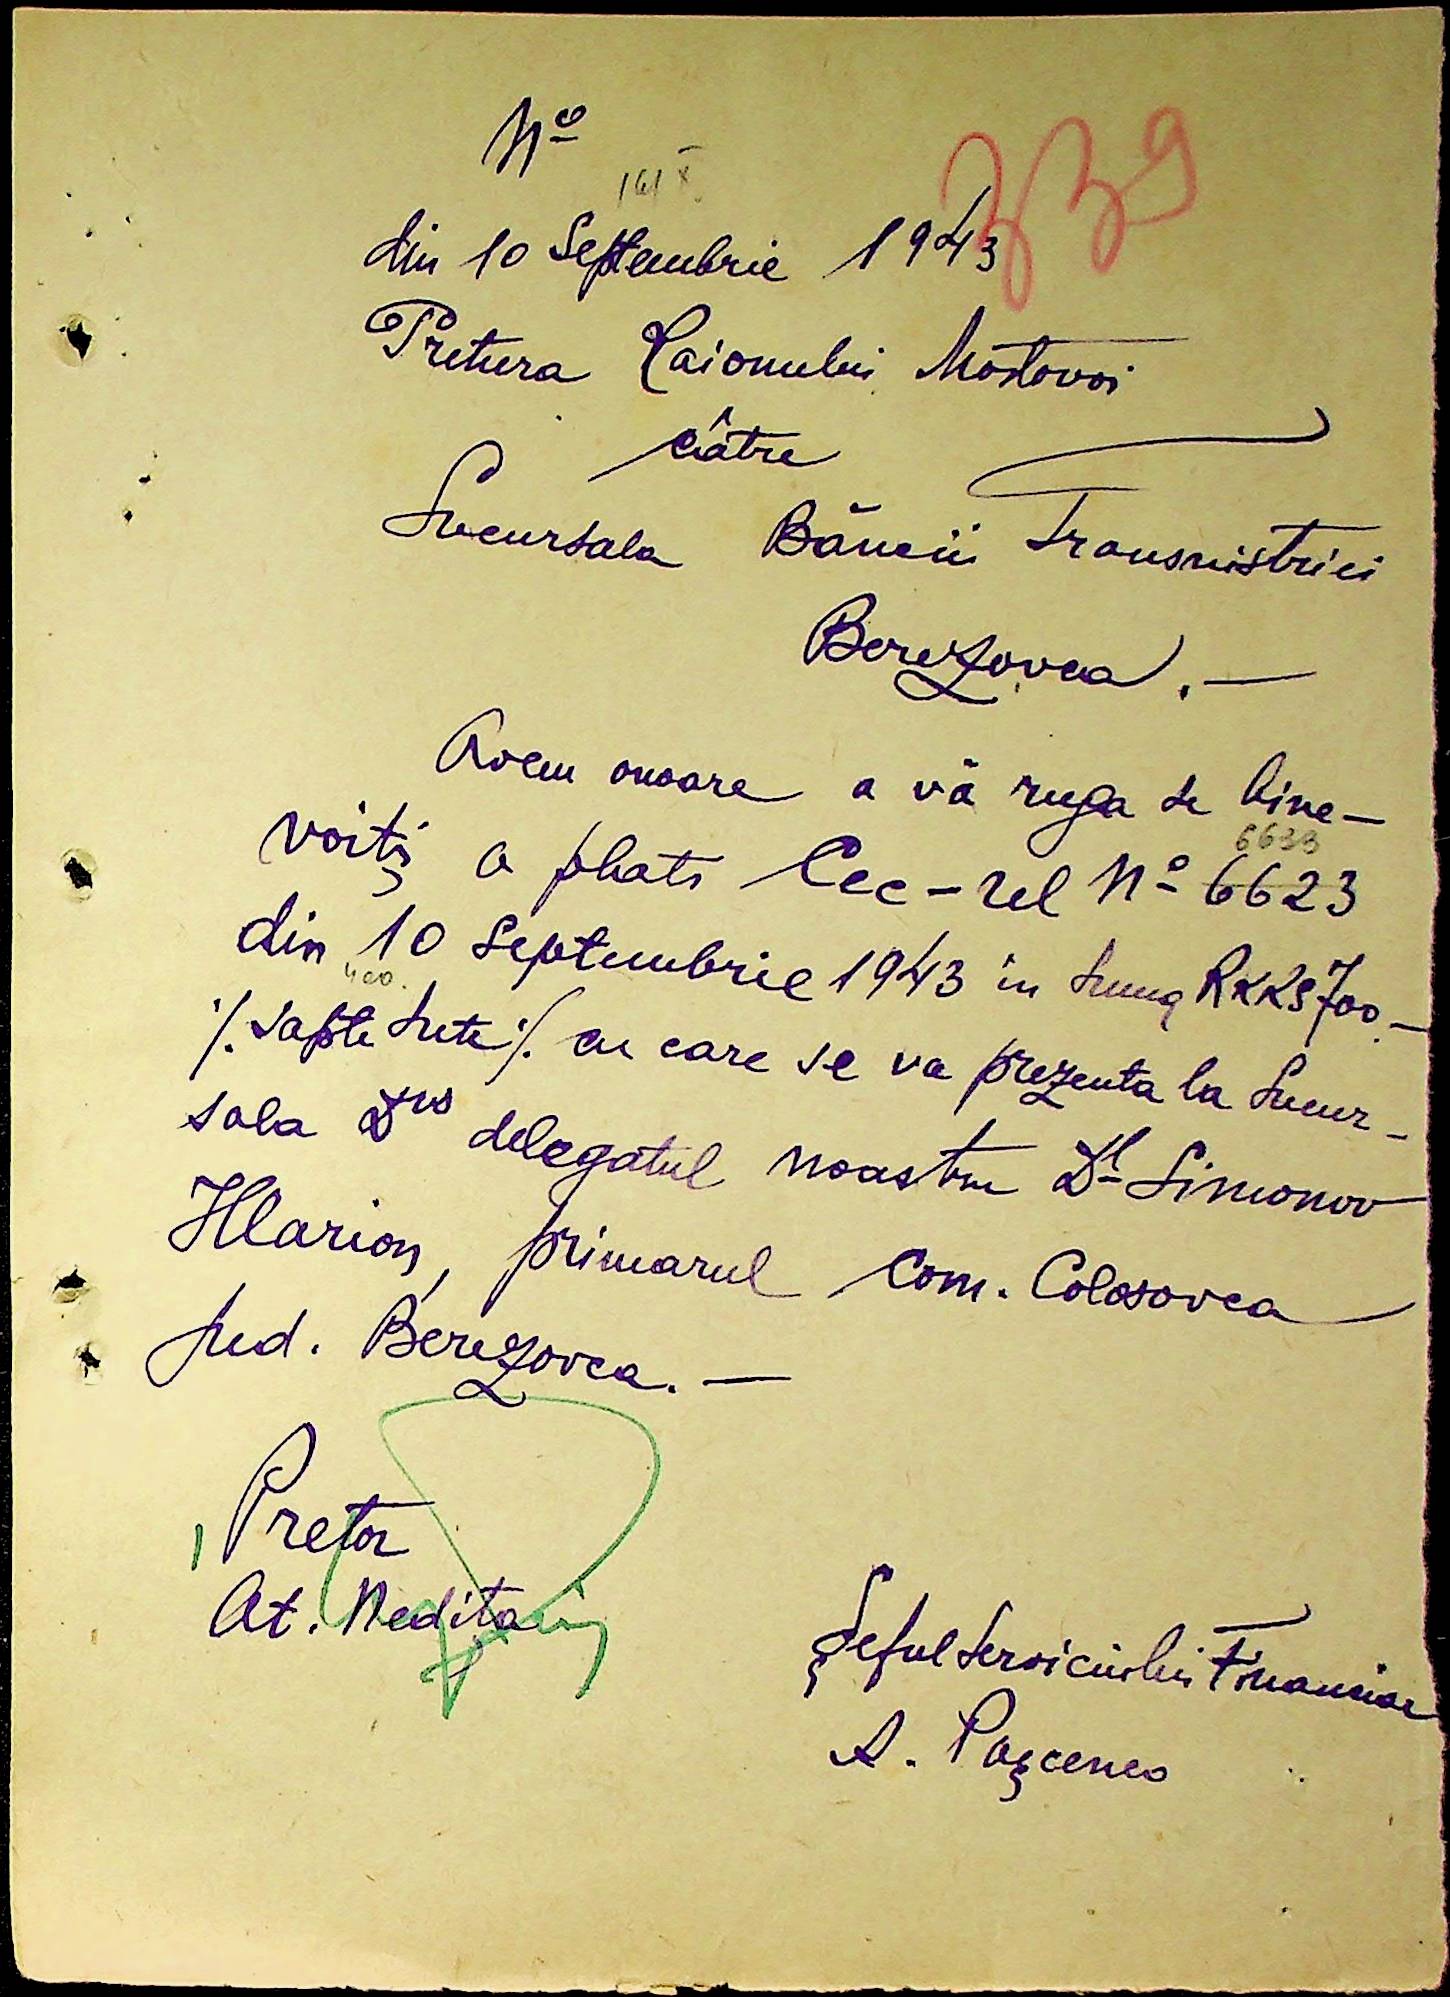 No
339
din 10 Septembrie 1943
Pretura Raionului Mostovoi
către
Sucursala Băncii Transnistriei
Berezovca. —
Avem onoare a vă ruga să bine-
6633
voiți a plăti Cec-rul No 6623
din 10 Septembrie 1943 în suma RKKS 700.—
400.
/. șapte sute /. cu care se va prezenta la Sucur-
sala Dvs delegatul noastru Dl Simonov
Ilarion, primarul Com. Colosovca
Jud. Berezovca. —
Pretor
At. Nedita
Șeful Serviciului Financiar
A. Pașcenco